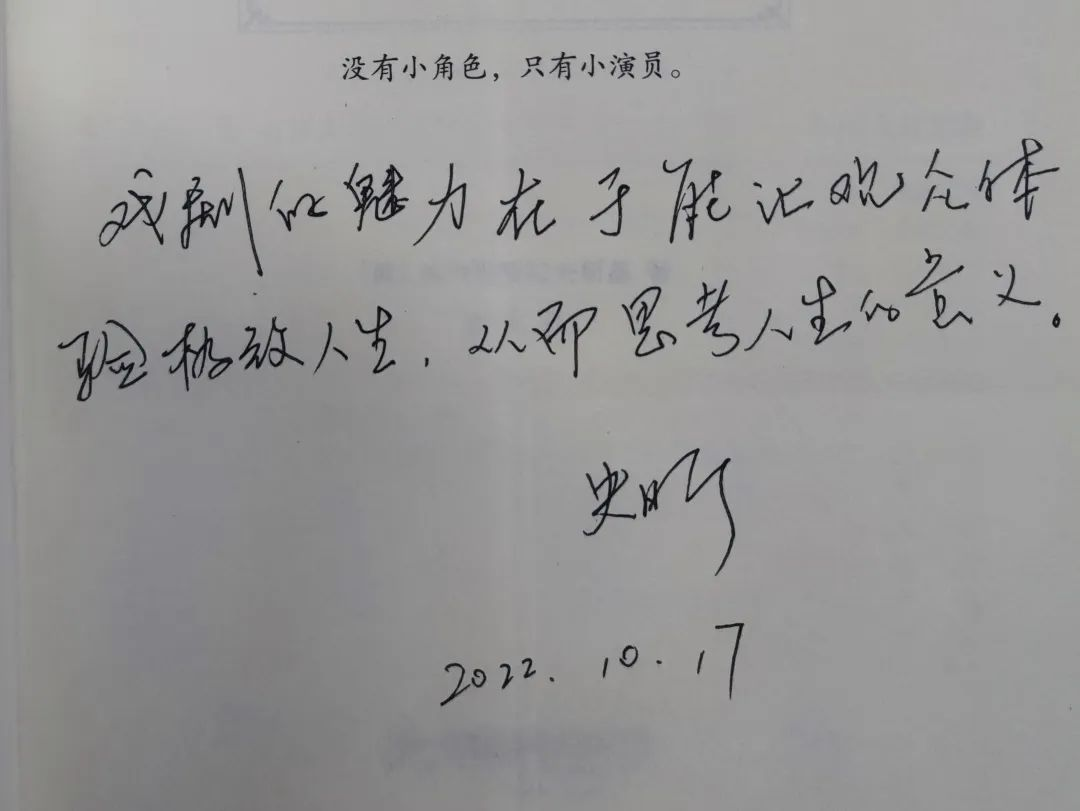 没有小角色，只有小演员。
戏剧的魅力在于能让观众体
验极致人生，从而思考人生的意义。
史昕
2022.10.17